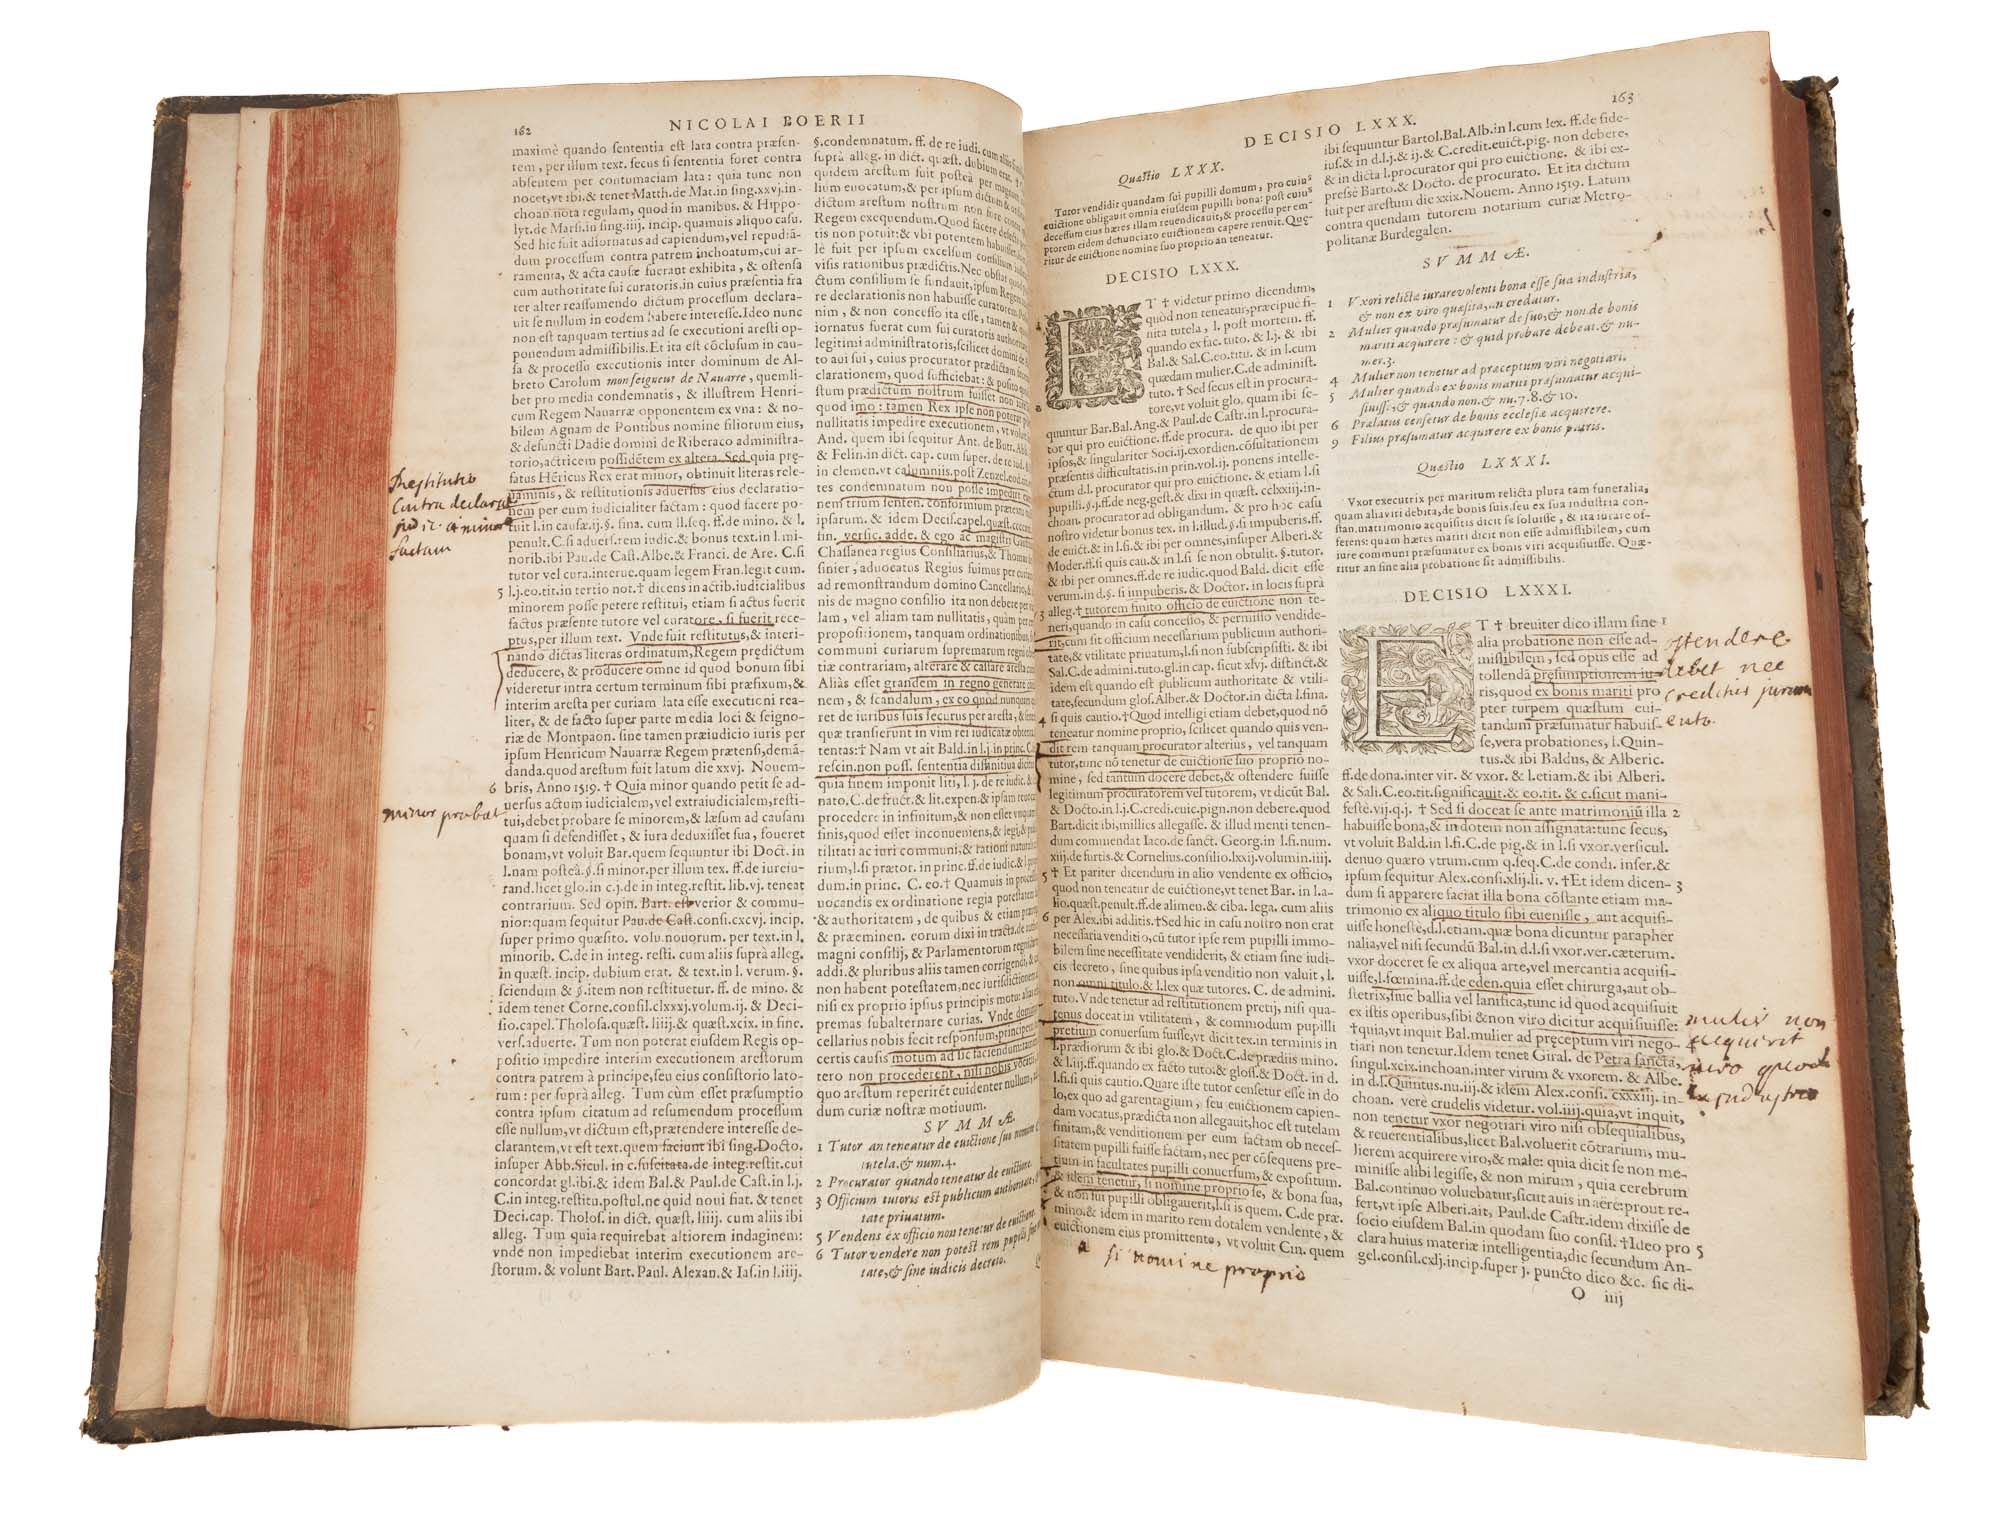 162
NICOLAI BOERII
maximè quando sententia est lata contra præsen-
tem, per illum text. secus si sententia foret contra
absentem per contumaciam lata: quia tunc non
nocet, vt ibi. & tenet Matth. de Mat. in sing. xxvj. in-
choan. nota regulam, quod in manibus. & Hippo-
lyt. de Marsi. in sing. iiij. incip. quamuis aliquo casu.
Sed hic fuit adiornatus ad capiendum, vel repudiā-
dum processum contra patrem inchoatum, cui ar-
ramenta, & acta causæ fuerant exhibita, & ostensa
cum authoritate sui curatoris. in cuius præsentia fra
ter alter reassumendo dictum processum declara-
uit se nullum in eodem habere interesse. Ideo nunc
non est tanquam tertius ad se executioni aresti op-
ponendum admissibilis. Et ita est cōclusum in cau-
sa & processu executionis inter dominum de Al-
breto Carolum monseigneur de Nauarre, quemli-
bet pro media condemnatis, & illustrem Henri-
cum Regem Nauarræ opponentem ex vna: & no-
bilem Agnam de Pontibus nomine filiorum eius,
& defuncti Dadie domini de Riberaco administra-
torio, actricem possidētem ex altera. Sed quia prę-
fatus Hēricus Rex erat minor, obtinuit literas rele-
uaminis, & restitutionis aduersus eius declaratio-
nem per eum iudicialiter factam: quod facere po-
tuit l. in causæ. ij. §. fina. cum ll. seq. ff. de mino. & l.
penult. C. si aduers. rem iudic. & bonus text. in l. mi-
norib. ibi Pau. de Cast. Albe. & Franci. de Are. C. si
tutor vel cura. interue. quam legem Fran. legit cum.
5 l. j. eo. tit. in tertio not. † dicens in actib. iudicialibus
minorem posse petere restitui, etiam si actus fuerit
factus præsente tutore vel curatore, si fuerit rece-
ptus, per illum text. Vnde fuit restitutus, & interi-
nando dictas literas ordinatum, Regem prędictum
deducere, & producere omne id quod bonum sibi
videretur intra certum terminum sibi præfixum, &
interim aresta per curiam lata esse executioni rea-
liter, & de facto super parte media loci & seigno-
riæ de Montpaon. sine tamen præiudicio iuris per
ipsum Henricum Nauarræ Regem prætensi, demā-
danda. quod arestum fuit latum die xxvj. Nouem-
6 bris, Anno 1519. † Quia minor quando petit se ad-
uersus actum iudicialem, vel extraiudicialem, resti-
tui, debet probare se minorem, & læsum ad causam
quam si defendisset, & iura deduxisset sua, foueret
bonam, vt voluit Bar. quem sequuntur ibi Doct. in
l. nam posteà. §. si minor. per illum tex. ff. de iureiu-
rand. licet glo. in c. j. de in integ. restit. lib. vj. teneat
contrarium. Sed opin. Bart. est verior & commu-
nior: quam sequitur Pau. de Cast. consi. cxcvj. incip.
super primo quæsito. volu. nouorum. per text. in l.
minorib. C. de in integ. resti. cum aliis suprà alleg.
in quæst. incip. dubium erat. & text. in l. verum. §.
sciendum & §. item non restituetur. ff. de mino. &
idem tenet Corne. consil. clxxxj. volum. ij. & Deci-
sio. capel. Tholosa. quæst. liiij. & quæst. xcix. in fine.
vers. aduerte. Tum non poterat eiusdem Regis op-
positio impedire interim executionem arestorum
contra patrem à principe, seu eius consistorio lato-
rum: per suprà alleg. Tum cùm esset præsumptio
contra ipsum citatum ad resumendum processum
esse nullum, vt dictum est, prætendere interesse de-
clarantem, vt est text. quem faciunt ibi sing. Docto.
insuper Abb. Sicul. in c. suscitata. de integ. restit. cui
concordat gl. ibi. & idem Bal. & Paul. de Cast. in l. j.
C. in integ. restitu. postul. ne quid noui fiat. & tenet
Deci. cap. Tholos. in dict. quæst. liiij. cum aliis ibi
alleg. Tum quia requirebat altiorem indaginem:
vnde non impediebat interim executionem are-
storum. & volunt Bart. Paul. Alexan. & Ias. in l. iiij.
Restitutio
Contra declarat
judic. a minore
factam
minor probat
§. condemnatum. ff. de re iudi. cum aliis
suprà alleg. in dict. quæst. dubium erat.
quidem arestum fuit posteà per magnum
lium euocatum, & per ipsum dictum &
dictum arestum nostrum non fore
Regem exequendum. Quod facere
tis non potuit: & vbi potentem habuisset
lè fuit per ipsum excelsum consilium
visis rationibus prædictis. Nec obstat quod
ctum consilium se fundauit, ipsum Regem
re declarationis non habuisse curatorem
nim, & non concesso ita esse, tamen
iornatus fuerat cum sui curatoris
legitimi administratoris, scilicet domini de
to aui sui, cuius procurator prædictam
clarationem, quod sufficiebat: & posito
stum prædictum nostrum fuisset non
quod imo: tamen Rex ipse non poterat
nullitatis impedire executionem, vt voluit
And. quem ibi sequitur Ant. de Butr. Abb.
& Felin. in dict. cap. cum super. de re iud. &
in clemen. vt calumniis. post Zenzel. eod.
tes condemnatum non posse impedire
trium senten. conformium prætextu
ipsarum. & idem Decis. capel. quæst.
fin. versic. adde. & ego ac magistri
Chassanea regius Consiliarius, & Thomas
sinier, aduocatus Regius fuimus per curiam
ad remonstrandum domino Cancellario, &
nis de magno consilio ita non debere per
lam, vel aliam tam nullitatis, quàm per
propositionem, tanquam ordinationibus
communi curiarum supremarum regni
tiæ contrariam, alterare & cassare aresta
Aliàs esset grandem in regno generare
nem, & scandalum, ex eo quod nunquam
ret de iuribus suis securus per aresta, &
quæ transierunt in vim rei iudicatæ
tentas: † Nam vt ait Bald. in l. j. in princ. C.
rescin. non poss. sententia diffinitiua
quia finem imponit liti, l. j. de re iudic. &
nato. C. de fruct. & lit. expen. & ipsam
procedere in infinitum, & non esset
finis, quod esset inconueniens, & legi, &
tilitati ac iuri communi, & rationi naturali
rium, l. si prætor. in princ. ff. de iudic. & l.
dum. in princ. C. eo. † Quamuis in
uocandis ex ordinatione regia potestatem
& authoritatem, de quibus & etiam
& præeminen. eorum dixi in tracta. de
magni consilij, & Parlamentorum
addi. & pluribus aliis tamen corrigendi, &
non habent potestatem, nec iurisdictionem
nisi ex proprio ipsius principis motu:
premas subalternare curias. Vnde dominus
cellarius nobis fecit responsum, principem
certis causis motum ad sic faciendum:
tero non procederent, nisi nobis
quo arestum reperirēt euidenter nullum,
dum curiæ nostræ motiuum.
SVMMÆ.
1 Tutor an teneatur de euictione suo nomine
tutela. & num. 4.
2 Procurator quando teneatur de euictione.
3 Officium tutoris est publicum authoritate,
tate priuatum.
5 Vendens ex officio non tenetur de euictione.
6 Tutor vendere non potest rem pupilli sine
tate, & sine iudicis decreto.
DECISIO LXXX.
163
Quæstio LXXX.
Tutor vendidit quandam sui pupilli domum, pro cuius
euictione obligauit omnia eiusdem pupilli bona: post cuius
decessum eius hæres illam reuendicauit, & processu per em-
ptorem eidem denunciato euictionem capere renuit. Quę-
ritur de euictione nomine suo proprio an teneatur.
DECISIO LXXX.
ET † videtur primo dicendum,
quòd non teneatur, præcipue fi-
nita tutela, l. post mortem. ff.
quando ex fac. tuto. & l. j. & ibi
Bal. & Sal. C. eo. titu. & in l. cum
quædam mulier. C. de administ.
tuto. † Sed secus est in procura-
tore, vt voluit glo, quam ibi se-
quuntur Bar. Bal. Ang. & Paul. de Castr. in l. procura-
tor qui pro euictione. ff. de procura. de quo ibi per
ipsos, & singulariter Soci. ij. exordien. cōsultationem
præsentis difficultatis. in prin. vol. ij. ponens intelle-
ctum d. l. procurator qui pro euictione. & etiam l. si
pupilli. §. j. ff. de neg. gest. & dixi in quæst. cclxxiij. in-
choan. procurator ad obligandum. & pro hoc casu
nostro videtur bonus tex. in l. illud. §. si impuberis. ff.
de euict. & in l. si. & ibi per omnes, insuper Alberi. &
Moder. ff. si quis cau. & in l. si se non obtulit. §. tutor.
& ibi per omnes. ff. de re iudic. quod Bald. dicit esse
verum. in d. §. si impuberis. & Doctor. in locis suprà
3 alleg. † tutorem finito officio de euictione non te-
neri, quando in casu concesso, & permisso vendide-
rit, cum sit officium necessarium publicum authori-
tate, & vtilitate priuatum, l. si non subscripsisti. & ibi
Sal. C. de admini. tut. gl. in cap. sicut xlvj. distinct. &
idem est quando est publicum authoritate & vtili-
tate, secundum glos. Alber. & Doctor. in dicta l. fina.
4 si quis cautio. † Quod intelligi etiam debet, quod nō
teneatur nomine proprio, scilicet quando quis ven-
dit rem tanquam procurator alterius, vel tanquam
tutor, tunc nō tenetur de euictione suo proprio no-
mine, sed tantum docere debet, & ostendere fuisse
legitimum procuratorem vel tutorem, vt dicūt Bal.
& Docto. in l. j. C. credi. euic. pign. non debere. quod
Bart. dicit ibi, millies allegasse. & illud menti tenen-
dum commendat Iaco. de sanct. Georg. in l. si. num.
xiij. de furtis. & Cornelius. consilio. lxxij. volumin. iiij.
5 † Et pariter dicendum in alio vendente ex officio,
quod non teneatur de euictione, vt tenet Bar. in l. a-
lio. quæst. penult. ff. de alimen. & ciba. lega. cum aliis
6 per Alex. ibi additis. † Sed hic in casu nostro non erat
necessaria venditio, cū tutor ipse rem pupilli immo-
bilem sine necessitate vendiderit, & etiam sine iudi-
cis decreto, sine quibus ipsa venditio non valuit, l.
non omni titulo. & l. lex quæ tutores. C. de admini.
tuto. Vnde tenetur ad restitutionem pretij, nisi qua-
tenus doceat in vtilitatem, & commodum pupilli
pretium conuersum fuisse, vt dicit tex. in terminis in
l. prædiorum & ibi glo. & Doct. C. de prædiis mino.
& l. iij. ff. quando ex facto tuto. & gloss. & Doct. in d.
l. si. si quis cautio. Quare iste tutor censetur esse in do
lo, ex quo ad garentagium, seu euictionem capien-
dam vocatus, prædicta non allegauit, hoc est tutelam
finitam, & venditionem per eum factam ob neces-
sitatem pupilli fuisse factam, nec per cōsequens pre-
tium in facultates pupilli conuersum, & expositum.
& idem tenetur, si nomine proprio se, & bona sua,
& non sui pupilli obligauerit, l. si is quem. C. de præ.
mino. & idem in marito rem dotalem vendente, &
euictionem eius promittente, vt voluit Cin. quem
a si nomine proprio
ibi sequuntur Bartol. Bal. Alb. in l. cum lex. ff. de fide-
ius. & in d. l. j. & ij. & C. credit. euict. pig. non debere,
& in dicta l. procurator qui pro euictione. & ibi ex-
pressè Barto. & Docto. de procurato. Et ita dictum
fuit per arestum die xxix. Nouem. Anno 1519. Latum
contra quendam tutorem notarium curiæ Metro-
politanæ Burdegalen.
SVMMÆ.
1 Vxori relictæ iurare volenti bona esse sua industria,
& non ex viro quæsita, an credatur.
2 Mulier quando præsumatur de suo, & non de bonis
mariti acquirere: & quid probare debeat. & nu-
mer. 3.
4 Mulier non tenetur ad præceptum viri negotiari.
5 Mulier quando ex bonis mariti præsumatur acqui-
siuisse, & quando non. & nu. 7. 8. & 10.
6 Prælatus censetur de bonis ecclesiæ acquirere.
9 Filius præsumatur acquirere ex bonis patris.
Quæstio LXXXI.
Vxor executrix per maritum relicta plura tam funeralia,
quam aliaviri debita, de bonis suis, seu ex sua industria con-
stan. matrimonio acquisitis dicit se soluisse, & ita iurare of-
ferens: quam hæres mariti dicit non esse admissibilem, cum
iure communi præsumatur ex bonis viri acquisiuisse. Quæ-
ritur an sine alia probatione sit admissibilis.
DECISIO LXXXI.
ET † breuiter dico illam sine 1
alia probatione non esse ad-
missibilem, sed opus esse ad
tollendā præsumptionem iu-
ris, quod ex bonis mariti pro
pter turpem quæstum eui-
tandum præsumatur habuis-
se, vera probationes, l. Quin-
tus. & ibi Baldus, & Alberic.
ff. de dona. inter vir. & vxor. & l. etiam. & ibi Alberi.
& Sali. C. eo. tit. significauit. & eo. tit. & c. sicut mani-
feste. vij. q. j. † Sed si doceat se ante matrimoniū illa 2
habuisse bona, & in dotem non assignata: tunc secus,
vt voluit Bald. in l. fi. C. de pig. & in l. si vxor. versicul.
denuo quæro vtrum. cum q. seq. C. de condi. inser. &
ipsum sequitur Alex. consi. xlij. li. v. † Et idem dicen- 3
dum si apparere faciat illa bona cōstante etiam ma-
trimonio ex aliquo titulo sibi euenisse, aut acquisi-
uisse honeste, d. l. etiam. quæ bona dicuntur parapher
nalia, vel nisi secundū Bal. in d. l. si vxor. ver. cæterum.
vxor doceret se ex aliqua arte, vel mercantia acquisi-
uisse, l. fœmina. ff. de eden. quia esset chirurga, aut ob-
stetrix, siue ballia vel lanifica, tunc id quod acquisiuit
ex istis operibus, sibi & non viro dicitur acquisiuisse:
† quia, vt inquit Bal. mulier ad pręceptum viri nego- 4
tiari non tenetur. Idem tenet Giral. de Petra sancta,
singul. xcix. inchoan. inter virum & vxorem. & Albe.
in d. l. Quintus. nu. iij. & idem Alex. consi. cxxxiij. in-
choan. verè crudelis videtur. vol. iiij. quia, vt inquit,
non tenetur vxor negotiari viro nisi obsequialibus,
& reuerentialibus, licet Bal. voluerit cōtrarium, mu-
lierem acquirere viro, & male: quia dicit se non me-
minisse alibi legisse, & non mirum, quia cerebrum
Bal. continuo voluebatur, sicut auis in aëre: prout re-
fert, vt ipse Alberi. ait, Paul. de Castr. idem dixisse de
socio eiusdem Bal. in quodam suo consil. † Ideo pro 5
clara huius materiæ intelligentia, dic secundum An-
gel. consil. cxlj. incip. super j. puncto dico &c. sic di-
O iiij
ostendere
debet nec
creditur jura-
mento.
mulier non
acquirit
viro quod
ex industria